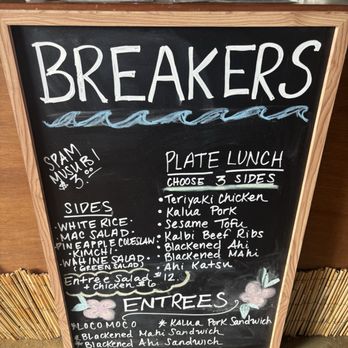 BREAKERS
SPAM
MUSUBI
$3.00
PLATE LUNCH
CHOOSE 3 SIDES
• Teriyaki Chicken
• Kalua Pork
• Sesame Tofu
• Kalbi Beef Ribs
• Blackened Ahi
• Blackened Mahi
• Ahi Katsu
SIDES
• WHITE RICE
• MAC SALAD
• PINEAPPLE COLESLAW
• KIMCHI
• WAHINE SALAD
(GREEN SALAD)
Entrée Salad $12.
+ Chicken $6
ENTREES
* LOCO MOCO * Kalua Pork Sandwich
* Blackened Mahi Sandwich
* Blackened Ahi Sandwich